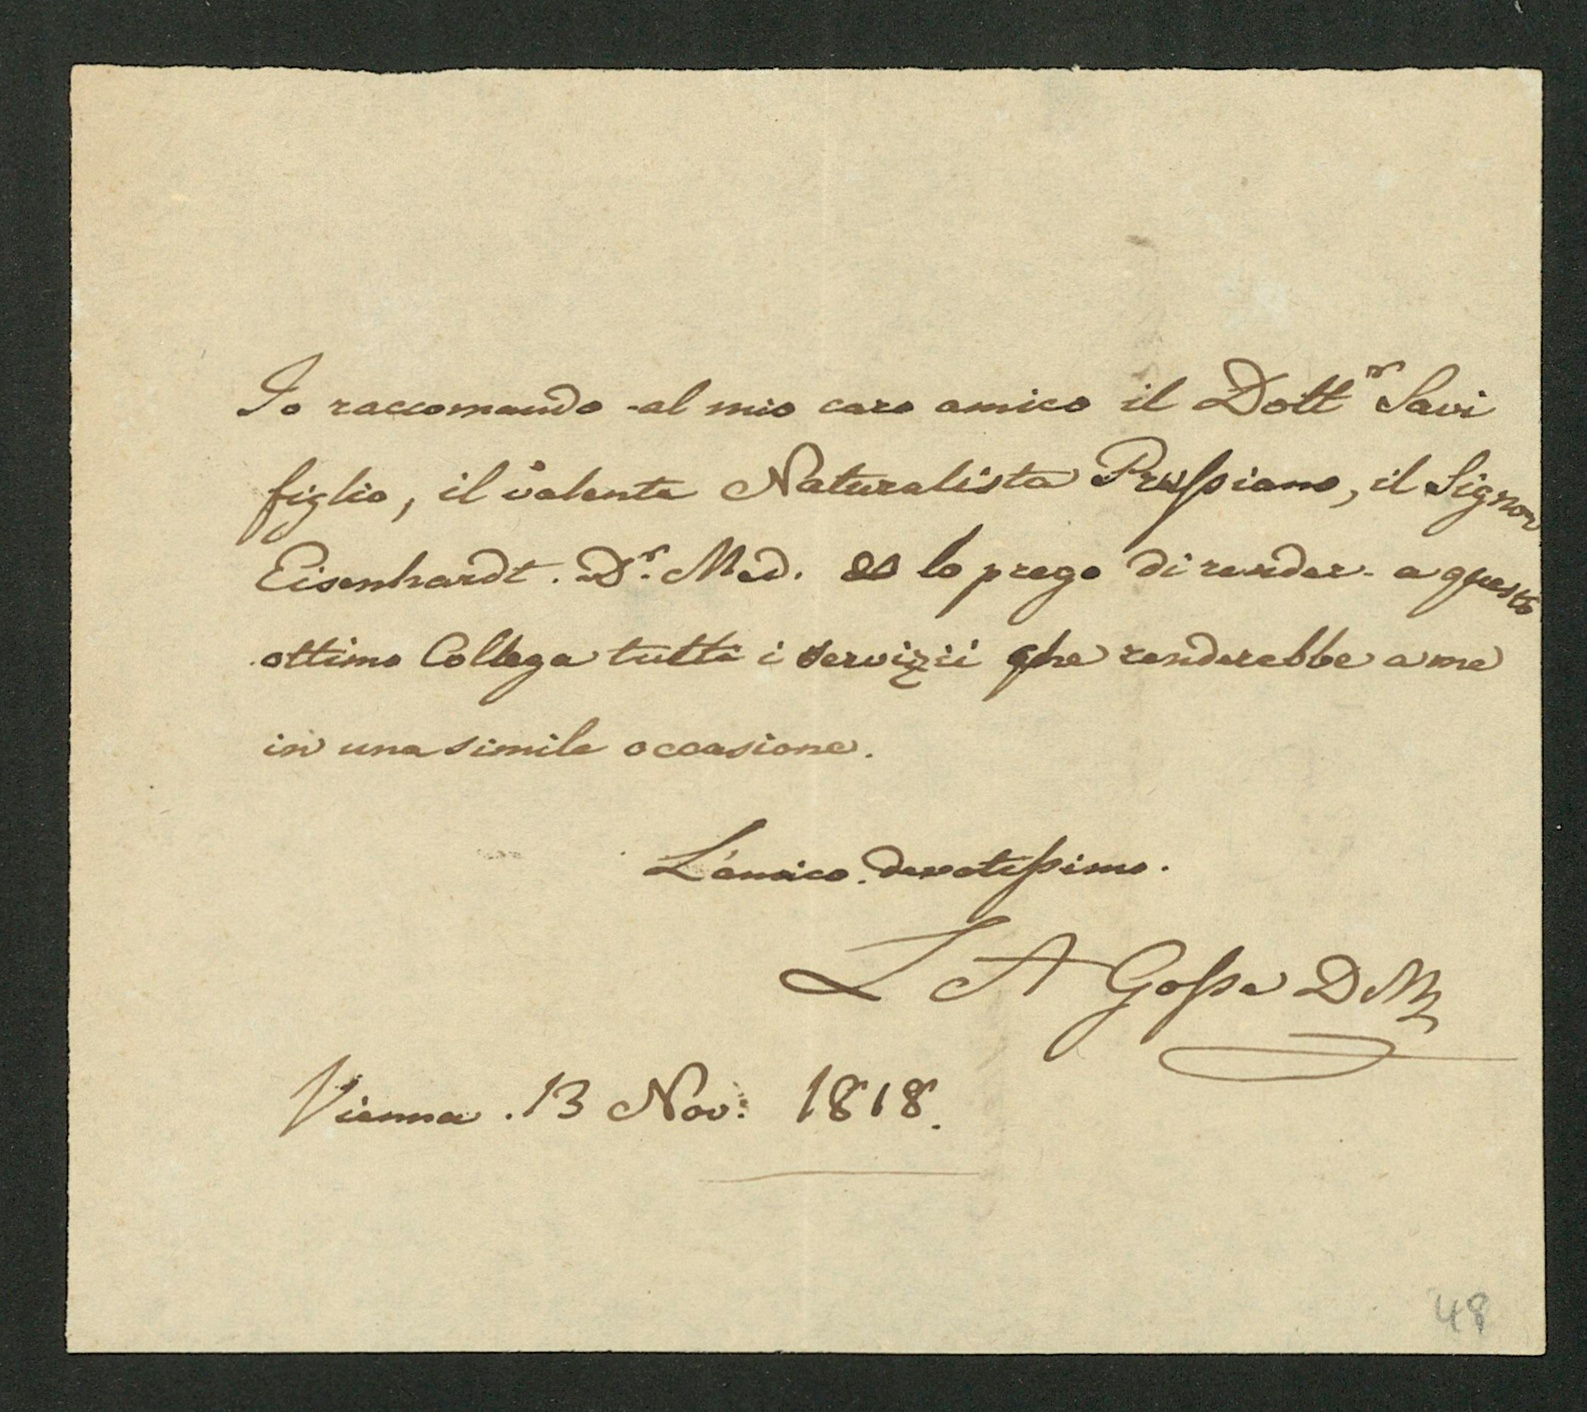 Io raccomando al mio caro amico il Dott.r Savi
figlio, il valente Naturalista Prussiano, il Signor
Eisenhardt. Dr. Med. lo prego di render a questo
ottimo Collega tutti i servizii che renderebbe a me
in una simile occasione.
L'amico devotissimo.
L A Gosse DM
Vienna . 13 Nov: 1818.
48